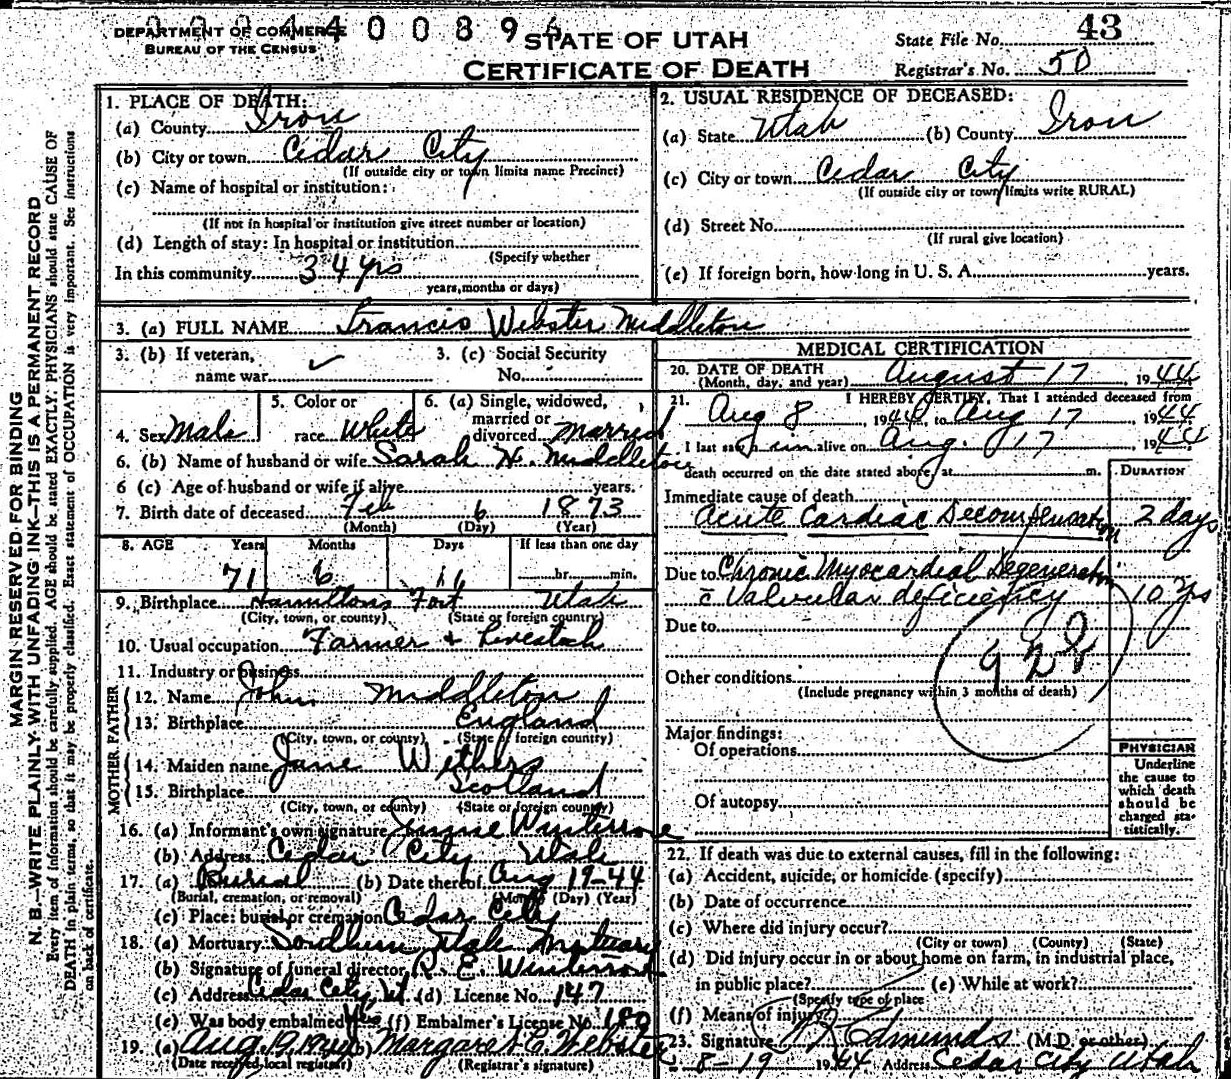 0 0 4 4 0 0 8 9 6
DEPARTMENT OF COMMERCE
BUREAU OF THE CENSUS
STATE OF UTAH
CERTIFICATE OF DEATH
State File No. 43
Registrar's No. 50
MARGIN RESERVED FOR BINDING
N. B.—WRITE PLAINLY WITH UNFADING INK—THIS IS A PERMANENT RECORD
Every item of information should be carefully supplied. AGE should be stated EXACTLY. PHYSICIANS should state CAUSE OF
DEATH in plain terms, so that it may be properly classified. Exact statement of OCCUPATION is very important. See instructions
on back of certificate.
1. PLACE OF DEATH:
(a) County Iron
(b) City or town Cedar City
(If outside city or town limits name Precinct)
(c) Name of hospital or institution:
(If not in hospital or institution give street number or location)
(d) Length of stay: In hospital or institution
(Specify whether
In this community 34 yrs
years, months or days)
2. USUAL RESIDENCE OF DECEASED:
(a) State Utah (b) County Iron
(c) City or town Cedar City
(If outside city or town limits write RURAL)
(d) Street No.
(If rural give location)
(e) If foreign born, how long in U. S. A. years.
3. (a) FULL NAME Francis Webster Middleton
3. (b) If veteran,
name war ✓
3. (c) Social Security
No.
4. Sex Male
5. Color or
race White
6. (a) Single, widowed,
married or
divorced Married
6. (b) Name of husband or wife Sarah H. Middleton
6 (c) Age of husband or wife if alive years.
7. Birth date of deceased Feb 6 1873
(Month) (Day) (Year)
8. AGE Years Months Days If less than one day
71 6 11 hr. min.
9. Birthplace Hamiltons Fort Utah
(City, town, or county) (State or foreign country)
10. Usual occupation Farmer & Livestock
11. Industry or business
FATHER
12. Name John Middleton
13. Birthplace England
(City, town, or county) (State or foreign country)
MOTHER
14. Maiden name Jane Withers
15. Birthplace Scotland
(City, town, or county) (State or foreign country)
16. (a) Informant's own signature Winterrose
(b) Address Cedar City Utah
17. (a) Burial (b) Date thereof Aug 19-44
(Burial, cremation, or removal) (Month) (Day) (Year)
(c) Place: burial or cremation Cedar City
18. (a) Mortuary Southern Utah Mortuary
(b) Signature of funeral director R. E. Winterrose
(c) Address Cedar City Ut. (d) License No. 147
(e) Was body embalmed Yes (f) Embalmer's License No. 180
19. (a) Aug 19, 1944 (b) Margaret E. Webster
(Date received local registrar) (Registrar's signature)
MEDICAL CERTIFICATION
20. DATE OF DEATH
(Month, day, and year) August 17, 1944
21. I HEREBY CERTIFY, That I attended deceased from
Aug 8, 1944, to Aug 17 1944
I last saw him alive on Aug. 17, 1944
death occurred on the date stated above, at m.
DURATION
Immediate cause of death
Acute Cardiac Decompensation 2 days
Due to Chronic Myocardial Degeneration
c Valvular deficiency 10 yrs
Due to
92
Other conditions
(Include pregnancy within 3 months of death)
Major findings:
Of operations
Of autopsy
PHYSICIAN
Underline
the cause to
which death
should be
charged sta-
tistically.
22. If death was due to external causes, fill in the following:
(a) Accident, suicide, or homicide (specify)
(b) Date of occurrence
(c) Where did injury occur?
(City or town) (County) (State)
(d) Did injury occur in or about home on farm, in industrial place,
in public place? (e) While at work?
(Specify type of place
(f) Means of injury
23. Signature Edmunds (M.D. or other)
8-19 1944 Address Cedar City Utah